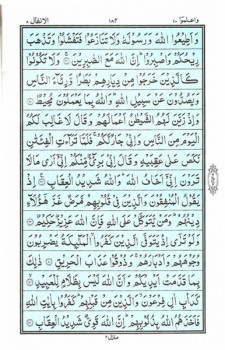 الانفال ٨ ١٨٢ واعلموا ١٠
وَاَطِيْعُوا اللّٰهَ وَرَسُوْلَهٗ وَلَا تَنَازَعُوْا فَتَفْشَلُوْا وَتَذْهَبَ
رِيْحُكُمْ وَاصْبِرُوْا اِنَّ اللّٰهَ مَعَ الصّٰبِرِيْنَ وَلَا تَكُوْنُوْا
كَالَّذِيْنَ خَرَجُوْا مِنْ دِيَارِهِمْ بَطَرًا وَّرِئَآءَ النَّاسِ
وَيَصُدُّوْنَ عَنْ سَبِيْلِ اللّٰهِ وَاللّٰهُ بِمَا يَعْمَلُوْنَ مُحِيْطٌ
وَاِذْ زَيَّنَ لَهُمُ الشَّيْطٰنُ اَعْمَالَهُمْ وَقَالَ لَا غَالِبَ لَكُمُ
الْيَوْمَ مِنَ النَّاسِ وَاِنِّيْ جَارٌ لَّكُمْ فَلَمَّا تَرَآءَتِ الْفِئَتٰنِ
نَكَصَ عَلٰى عَقِبَيْهِ وَقَالَ اِنِّيْ بَرِيْٓءٌ مِّنْكُمْ اِنِّيْٓ اَرٰى مَا لَا
تَرَوْنَ اِنِّيْٓ اَخَافُ اللّٰهَ وَاللّٰهُ شَدِيْدُ الْعِقَابِ اِذْ
يَقُوْلُ الْمُنٰفِقُوْنَ وَالَّذِيْنَ فِيْ قُلُوْبِهِمْ مَّرَضٌ غَرَّ هٰٓؤُلَآءِ
دِيْنُهُمْ وَمَنْ يَّتَوَكَّلْ عَلَى اللّٰهِ فَاِنَّ اللّٰهَ عَزِيْزٌ حَكِيْمٌ
وَلَوْ تَرٰٓى اِذْ يَتَوَفَّى الَّذِيْنَ كَفَرُوا الْمَلٰٓئِكَةُ يَضْرِبُوْنَ
وُجُوْهَهُمْ وَاَدْبَارَهُمْ وَذُوْقُوْا عَذَابَ الْحَرِيْقِ ذٰلِكَ
بِمَا قَدَّمَتْ اَيْدِيْكُمْ وَاَنَّ اللّٰهَ لَيْسَ بِظَلَّامٍ لِّلْعَبِيْدِ
كَدَاْبِ اٰلِ فِرْعَوْنَ وَالَّذِيْنَ مِنْ قَبْلِهِمْ كَفَرُوْا بِاٰيٰتِ اللّٰهِ
فَاَخَذَهُمُ اللّٰهُ بِذُنُوْبِهِمْ اِنَّ اللّٰهَ قَوِيٌّ شَدِيْدُ الْعِقَابِ
منزل ٢